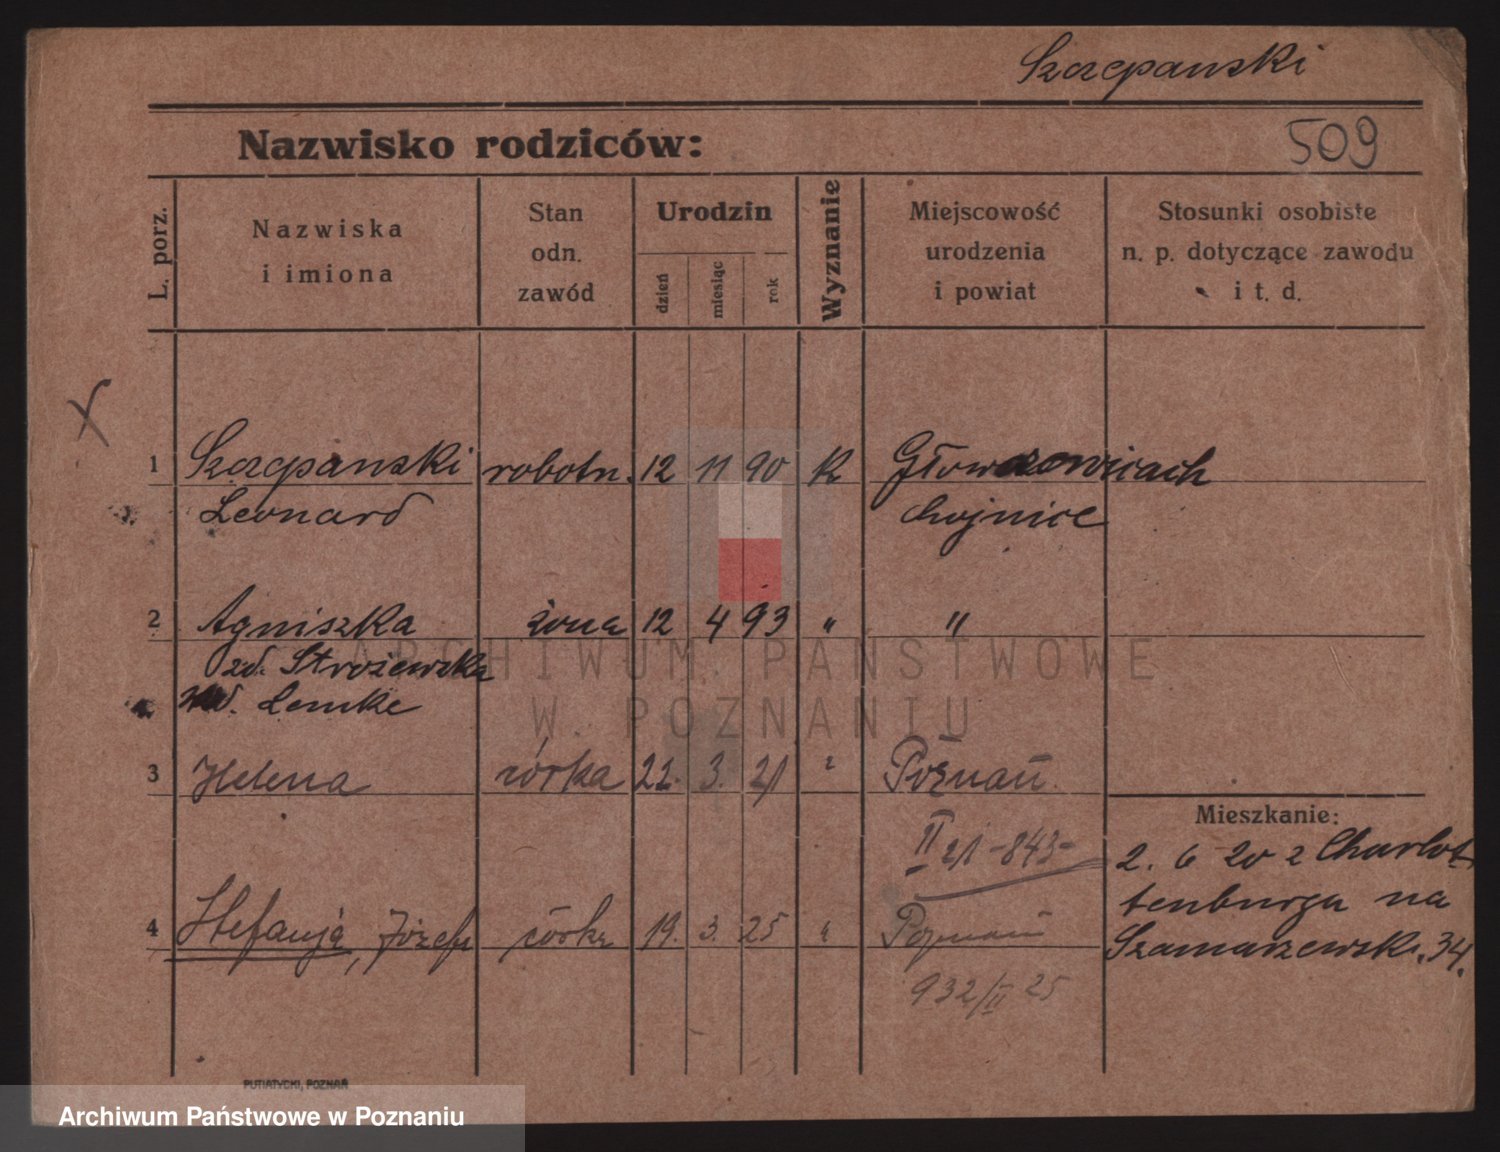 Szczepanski
Nazwisko rodziców:
509
L. porz.
Nazwiska
i imiona
Stan
odn.
zawód
Urodzin
dzień
miesiąc
rok
Wyznanie
Miejscowość
urodzenia
i powiat
Stosunki osobiste
n. p. dotyczące zawodu
i t. d.
X
1 Szczepanski robotn. 12 11 90 K
Leonard Chojnice
2 Agniszka żona 12 4 93 " "
zd. Strożewska
Lemke
3 Helena córka 22. 3. 21 " Poznań.
II 21 - 843 -
Mieszkanie:
2. 6 20 z Charlot
tenburga na
Szamarzewsk. 34.
4 Stefanja, Józefa córka 19. 3. 25 " Poznań
932/II 25
ARCHIWUM PAŃSTWOWE
W POZNANIU
PUTIATYCKI, POZNAŃ
Archiwum Państwowe w Poznaniu